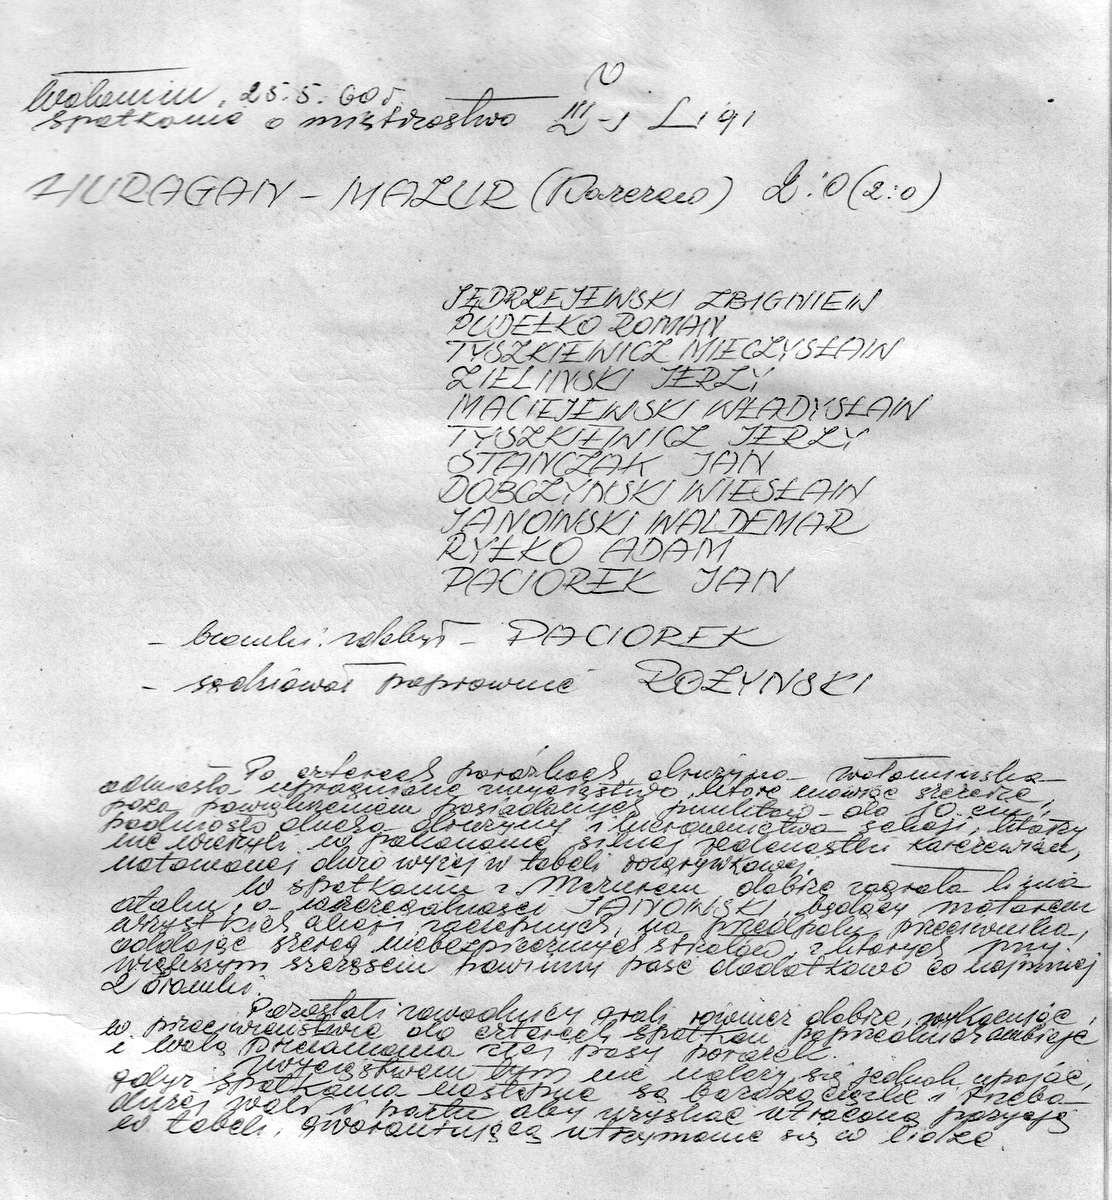 Wołomin, 25.5.60 r.
V
spotkanie o mistrzostwo III-j Ligi
HURAGAN – MAZUR (Karczew) 2:0 (2:0)
JĘDRZEJEWSKI ZBIGNIEW
PUDEŁKO ROMAN
TYSZKIEWICZ MIECZYSŁAW
ZIELINSKI JERZY
MACIEJEWSKI WŁADYSŁAW
TYSZKIEWICZ JERZY
STANCZAK JAN
DOBCZYNSKI WIESŁAW
JANOWSKI WALDEMAR
RYŁKO ADAM
PACIOREK JAN
– bramki zdobył – PACIOREK
– sędziował poprawnie ROŻYNSKI
Po czterech porażkach drużyna wołomińska
odniosła upragnione zwycięstwo, które mówiąc szczerze,
poza powiększeniem posiadanych punktów do 10-ciu,
podniosło ducha drużyny i kierownictwa sekcji, którzy
nie wierzyli w pokonanie silnej jedenastki karczewian,
notowanej dużo wyżej w tabeli rozgrywkowej.
W spotkaniu z Mazurem dobrze zagrała linia
ataku, a w szczególności JANOWSKI, będący motorem
wszystkich akcji zaczepnych, na przedpolu przeciwnika,
oddając szereg niebezpiecznych strzałów, z których przy
większym szczęściu powinny paść dodatkowo co najmniej
2 bramki.
Pozostali zawodnicy grali również dobrze, wykazując,
w przeciwieństwie do czterech spotkań poprzednich ambicje
i wolę przełamania złej passy porażek.
Zwycięstwem tym nie należy się jednak upajać,
gdyż spotkania następne są bardzo ciężkie i trzeba
dużej woli i hartu aby uzyskać utraconą pozycję
w tabeli, gwarantującą utrzymanie się w lidze.